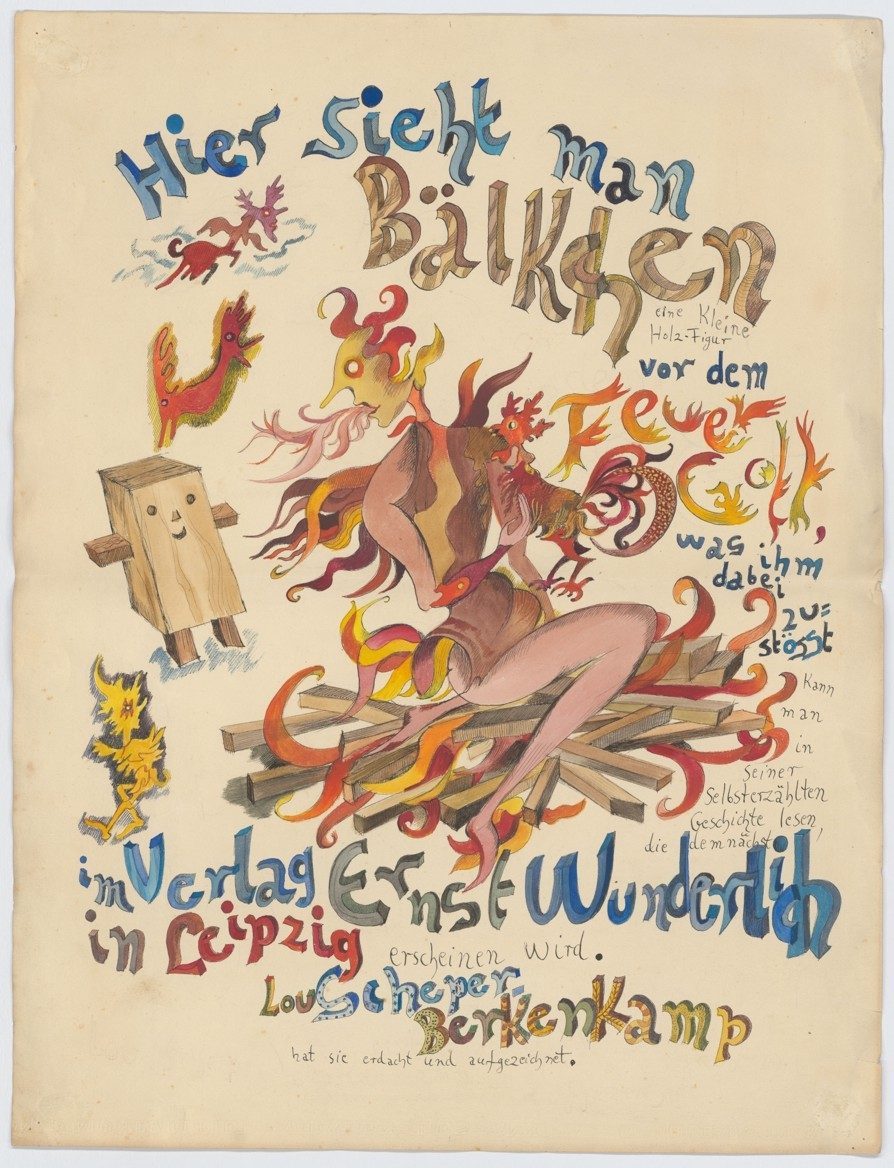 Hier sieht man
Bälkchen
eine Kleine
Holz-Figur
vor dem
Feuer
Gott,
was ihm
dabei
zu=
stösst
Kann
man
in
seiner
Selbsterzählten
Geschichte lesen,
die demnächst
im Verlag Ernst Wunderlich
in Leipzig
erscheinen wird.
Lou Scheper-
Berkenkamp
hat sie erdacht und aufgezeichnet.